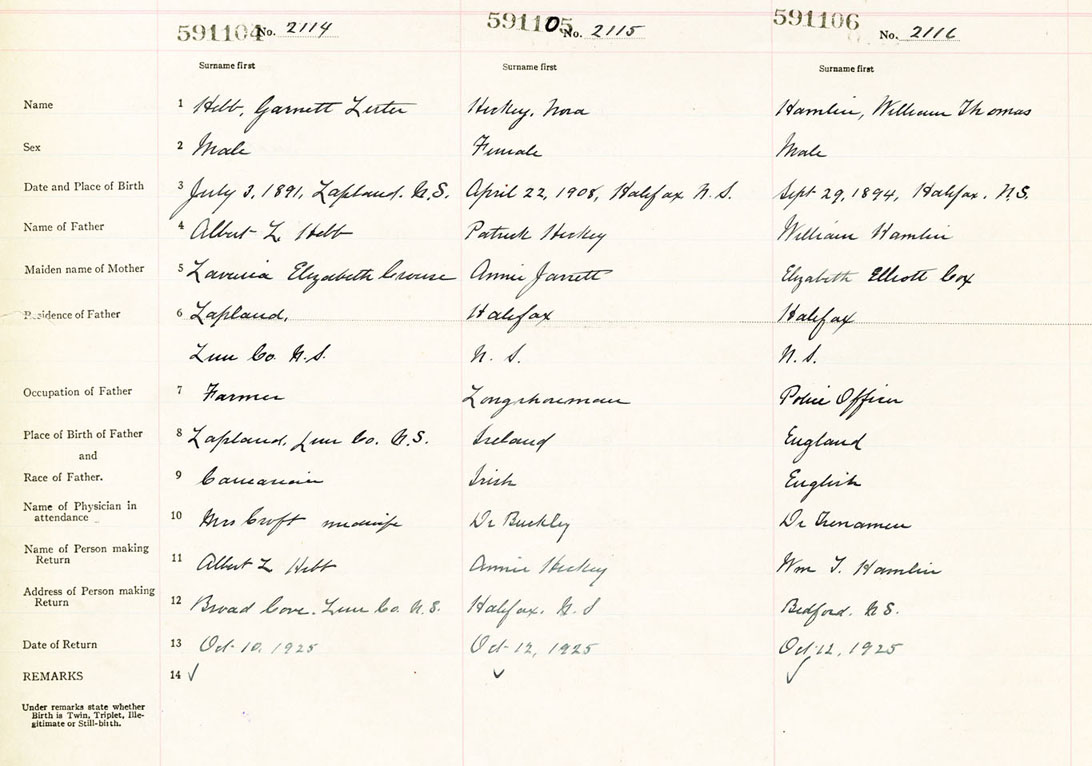 591104 No. 2114 591105 No. 2115 591106 No. 2116
Surname first Surname first Surname first
Name 1 Hebb, Garnett Lester Hickey, Nora Hamlin, William Thomas
Sex 2 Male Female Male
Date and Place of Birth 3 July 3, 1891, Lapland. N.S. April 22, 1908, Halifax N.S. Sept 29, 1894, Halifax. N.S.
Name of Father 4 Albert L. Hebb Patrick Hickey William Hamlin
Maiden name of Mother 5 Lavenia Elizabeth Crouse Annie Jarrett Elizabeth Elliott Cox
Residence of Father 6 Lapland, Halifax Halifax
Lun Co. N.S. N. S. N. S.
Occupation of Father 7 Farmer Longshoreman Police Officer
Place of Birth of Father 8 Lapland, Lun Co. N.S. Ireland England
and
Race of Father. 9 Caucasian Irish English
Name of Physician in
attendance 10 Mrs Croft midwife Dr Buckley Dr Trenaman
Name of Person making
Return 11 Albert L Hebb Annie Hickey Wm T. Hamlin
Address of Person making
Return 12 Broad Cove. Lun Co. N.S. Halifax. N.S Bedford. N S.
Date of Return 13 Oct 10, 1925 Oct 12, 1925 Oct 12, 1925
REMARKS 14 ✓ ✓ ✓
Under remarks state whether
Birth is Twin, Triplet, Ille-
gitimate or Still-birth.